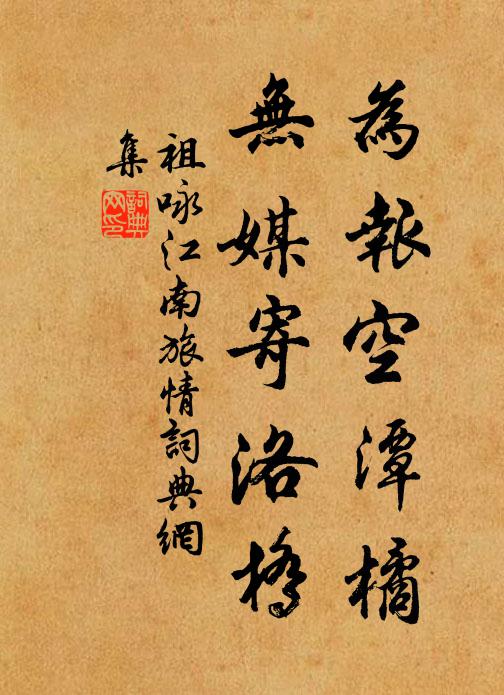 為報空潭橘
無媒寄洛橋
祖咏江南旅情詞典網
集
詞典
网印